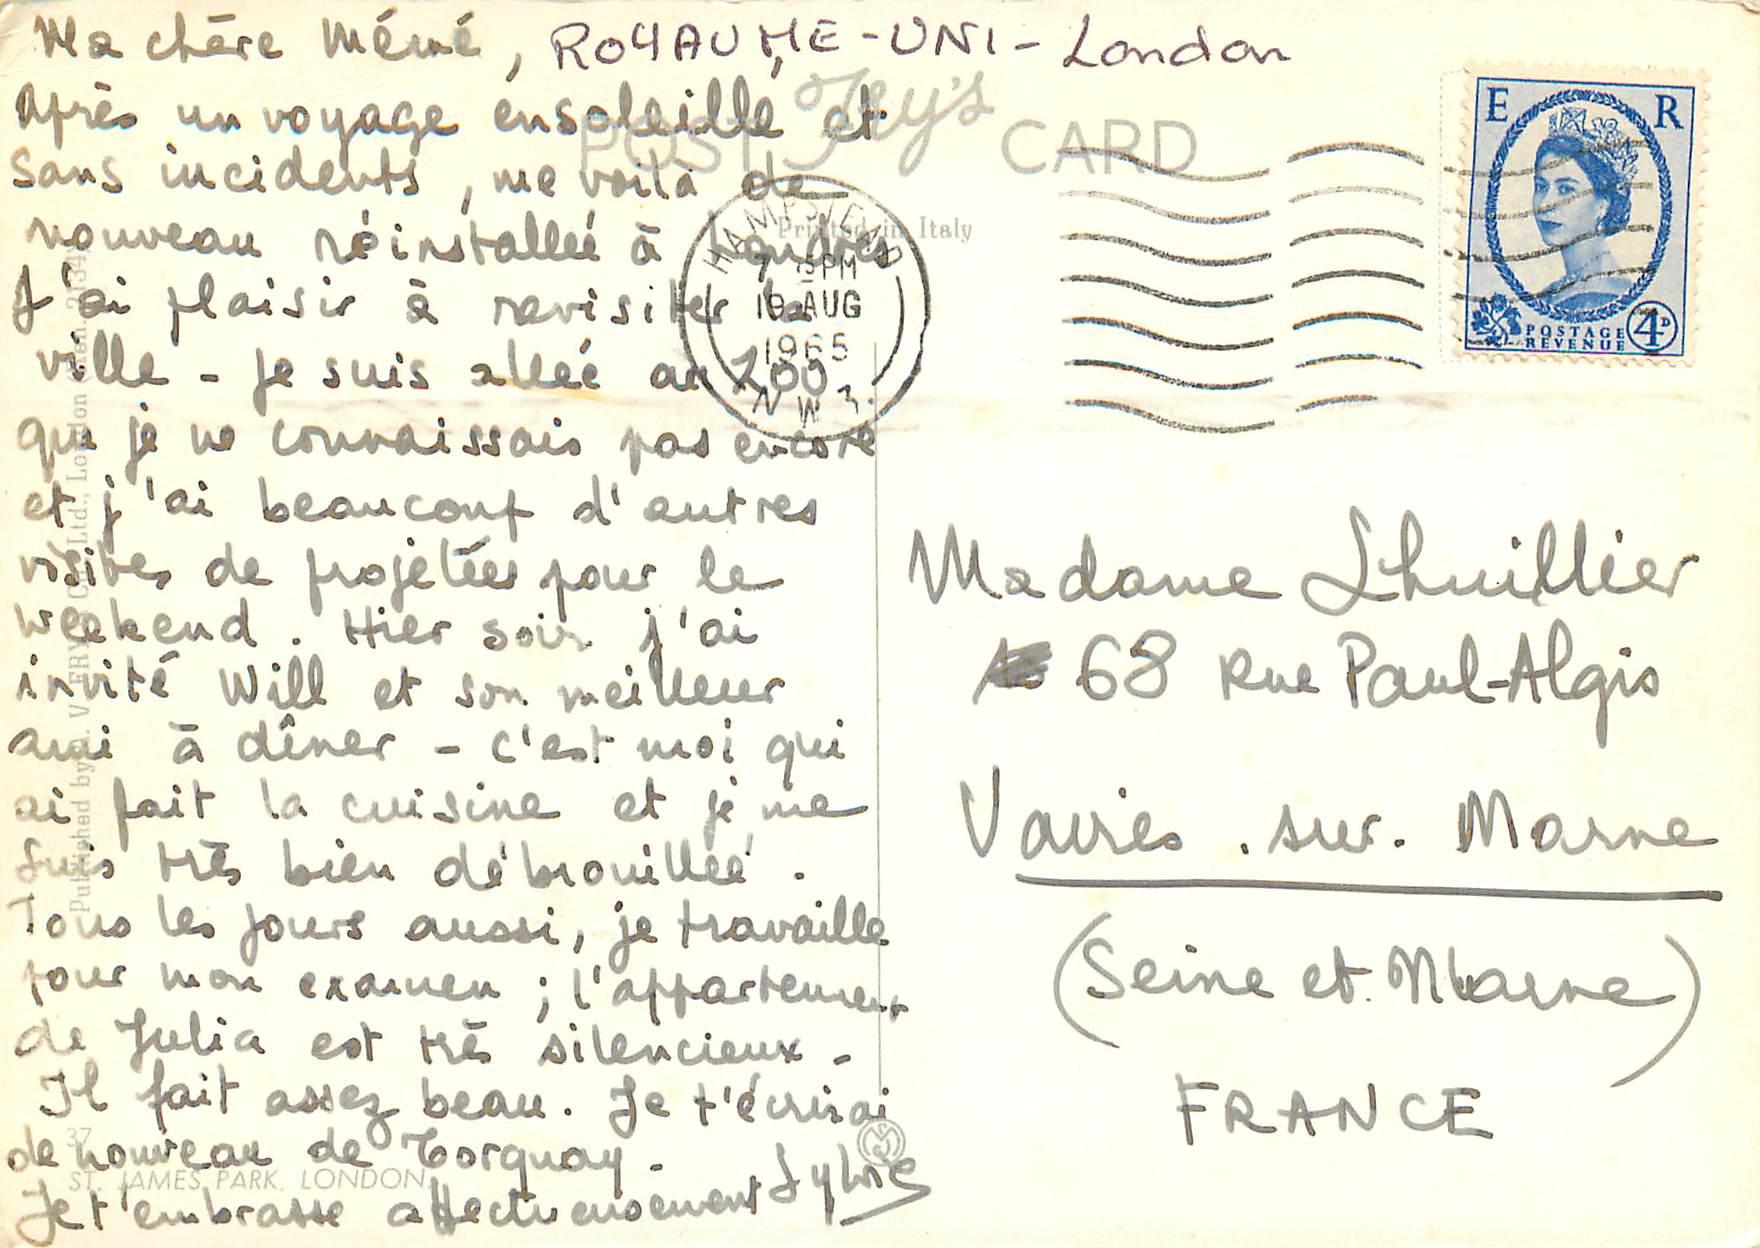 Ma chère Mémé, ROYAUME-UNI - London
Après un voyage ensoleillé et
sans incidents, me voilà de
nouveau réinstallée à Londres
J'ai plaisir à revisiter la
ville - je suis allée au ZOO
que je ne connaissais pas encore
et j'ai beaucoup d'autres
visites de projetées pour le
weekend. Hier soir j'ai
invité Will et son meilleur
ami à dîner - c'est moi qui
ai fait la cuisine et je me
suis très bien débrouillée.
Tous les jours aussi, je travaille
pour mon examen ; l'appartement
de Julia est très silencieux -
Il fait assez beau. Je t'écrirai
de nouveau de Torquay -
Je t'embrasse affectueusement Sylvie
Fry's
POST CARD
Printed in Italy
HAMPSTEAD
7 PM
AUG
1965
N.W.3.
E R
POSTAGE
REVENUE
4D
Madame Lhuillier
68 Rue Paul-Algis
Vaires. sur. Marne
(Seine et. Marne)
FRANCE
37
ST. JAMES PARK, LONDON.
Published by A. V. FRY & Co. Ltd., London